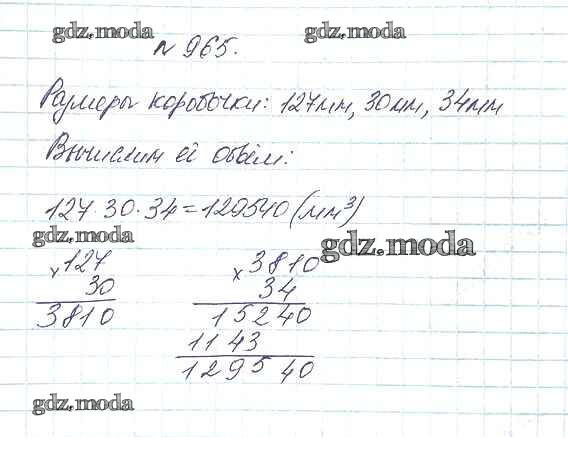 gdz.moda gdz.moda
№ 965.
Размеры коробочки: 127мм, 30мм, 34мм
Вычислим её объём:
127·30·34=129540 (мм³)
gdz.moda gdz.moda
x 127
30
3810
x 3810
34
15240
1143
129540
gdz.moda